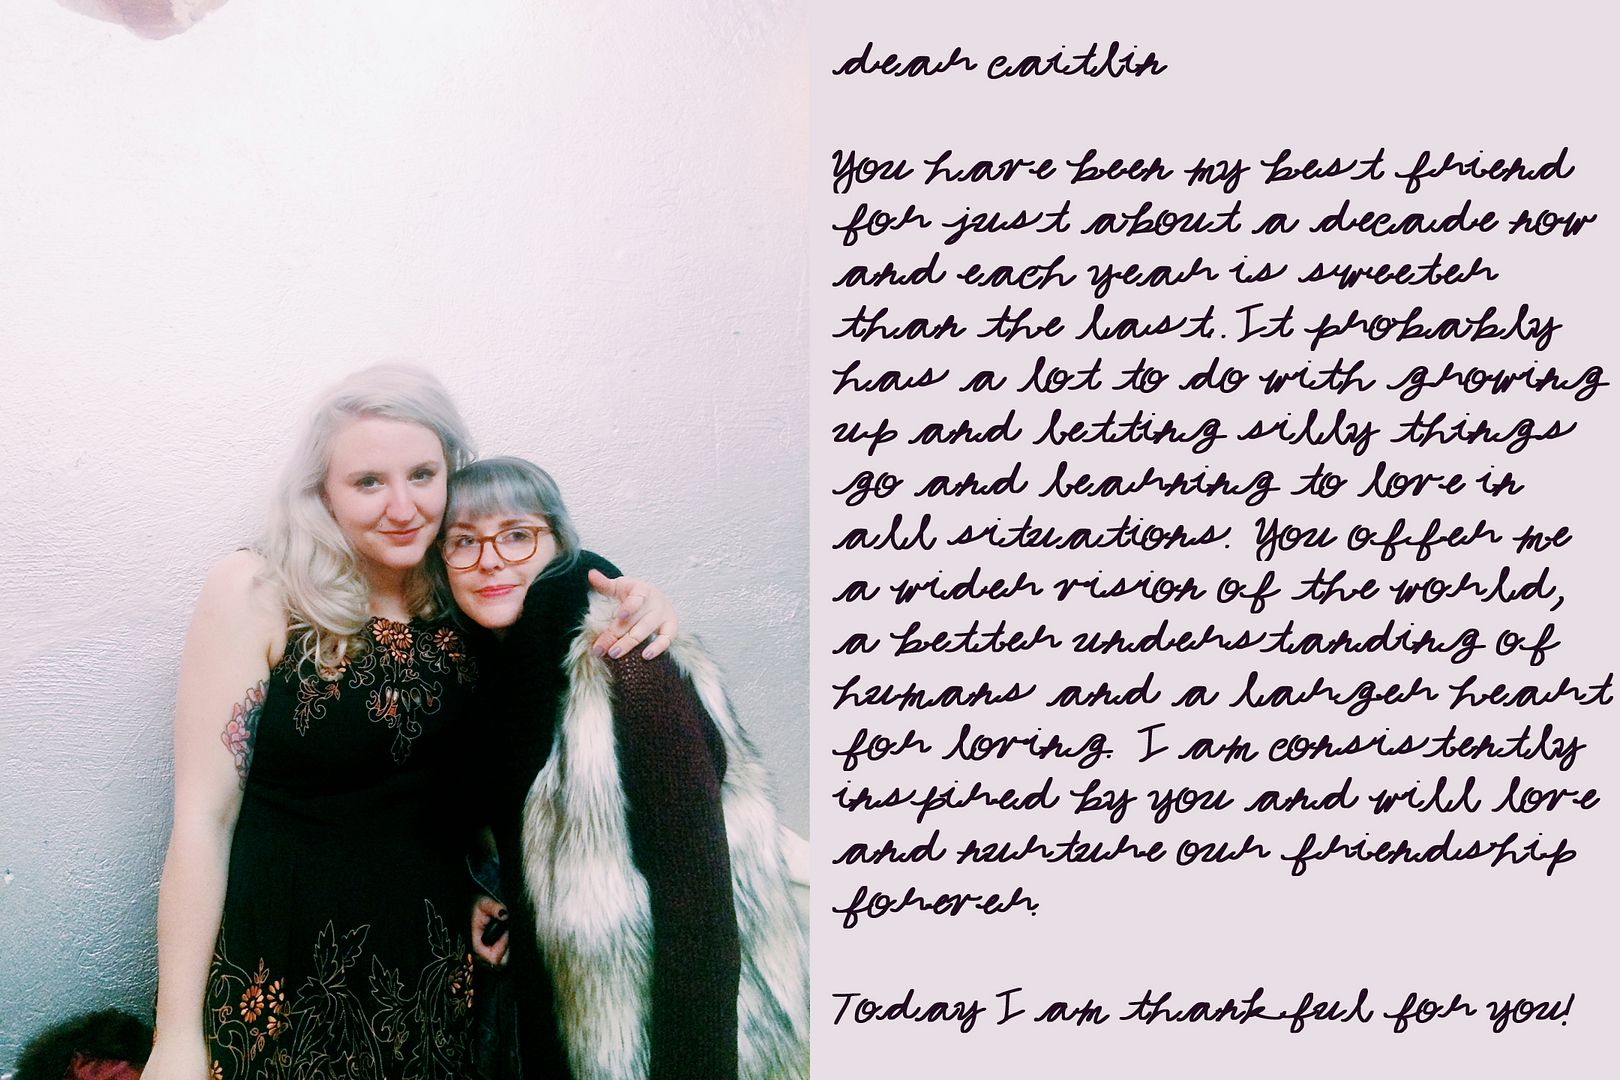 dear caitlin
You have been my best friend
for just about a decade now
and each year is sweeter
than the last. It probably
has a lot to do with growing
up and letting silly things
go and learning to love in
all situations. You offer me
a wider vision of the world,
a better understanding of
humans and a larger heart
for loving. I am consistently
inspired by you and will love
and nurture our friendship
forever.
Today I am thankful for you!